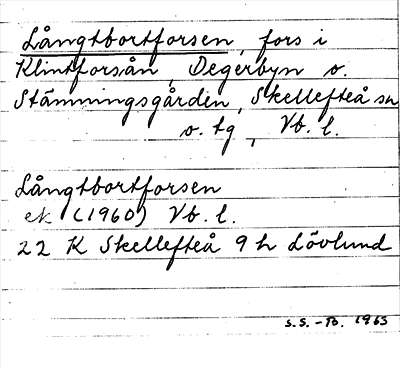 Långtbortforsen, fors i
Klintforsån, Degerbyn o.
Stämningsgården, Skellefteå sn
o. tg, Vb. l.
Långtbortforsen
ek (1960) Vb. l.
22 K Skellefteå 9 h Lövlund
S.S. - B. 1965